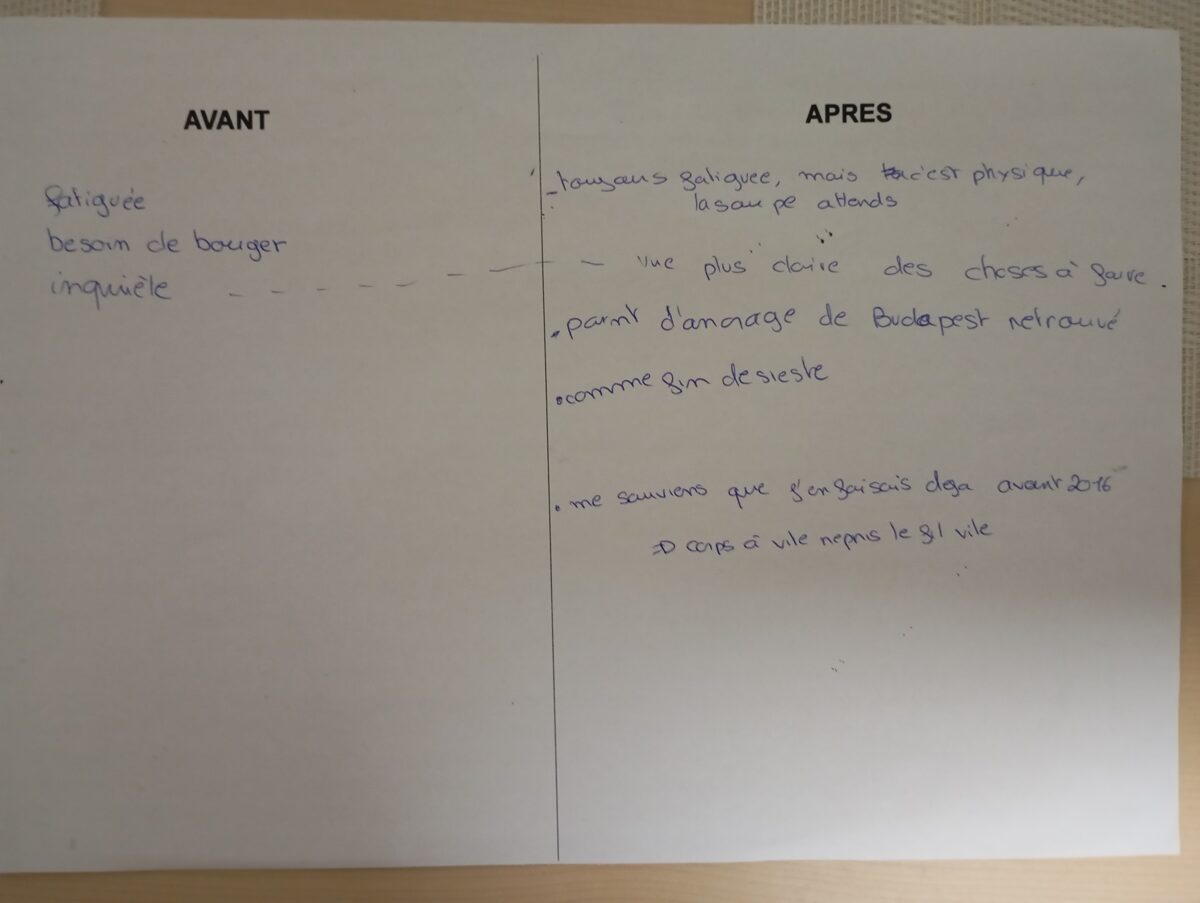 AVANT
fatiguée
besoin de bouger
inquiète
APRES
- toujours fatiguée, mais c'est physique,
la soupe attends
vue plus "claire" des choses à faire.
. point d'ancrage de Budapest retrouvé
. comme fin de sieste
. me souviens que j'en faisais deja avant 2016
=> corps à vite repris le fil vite